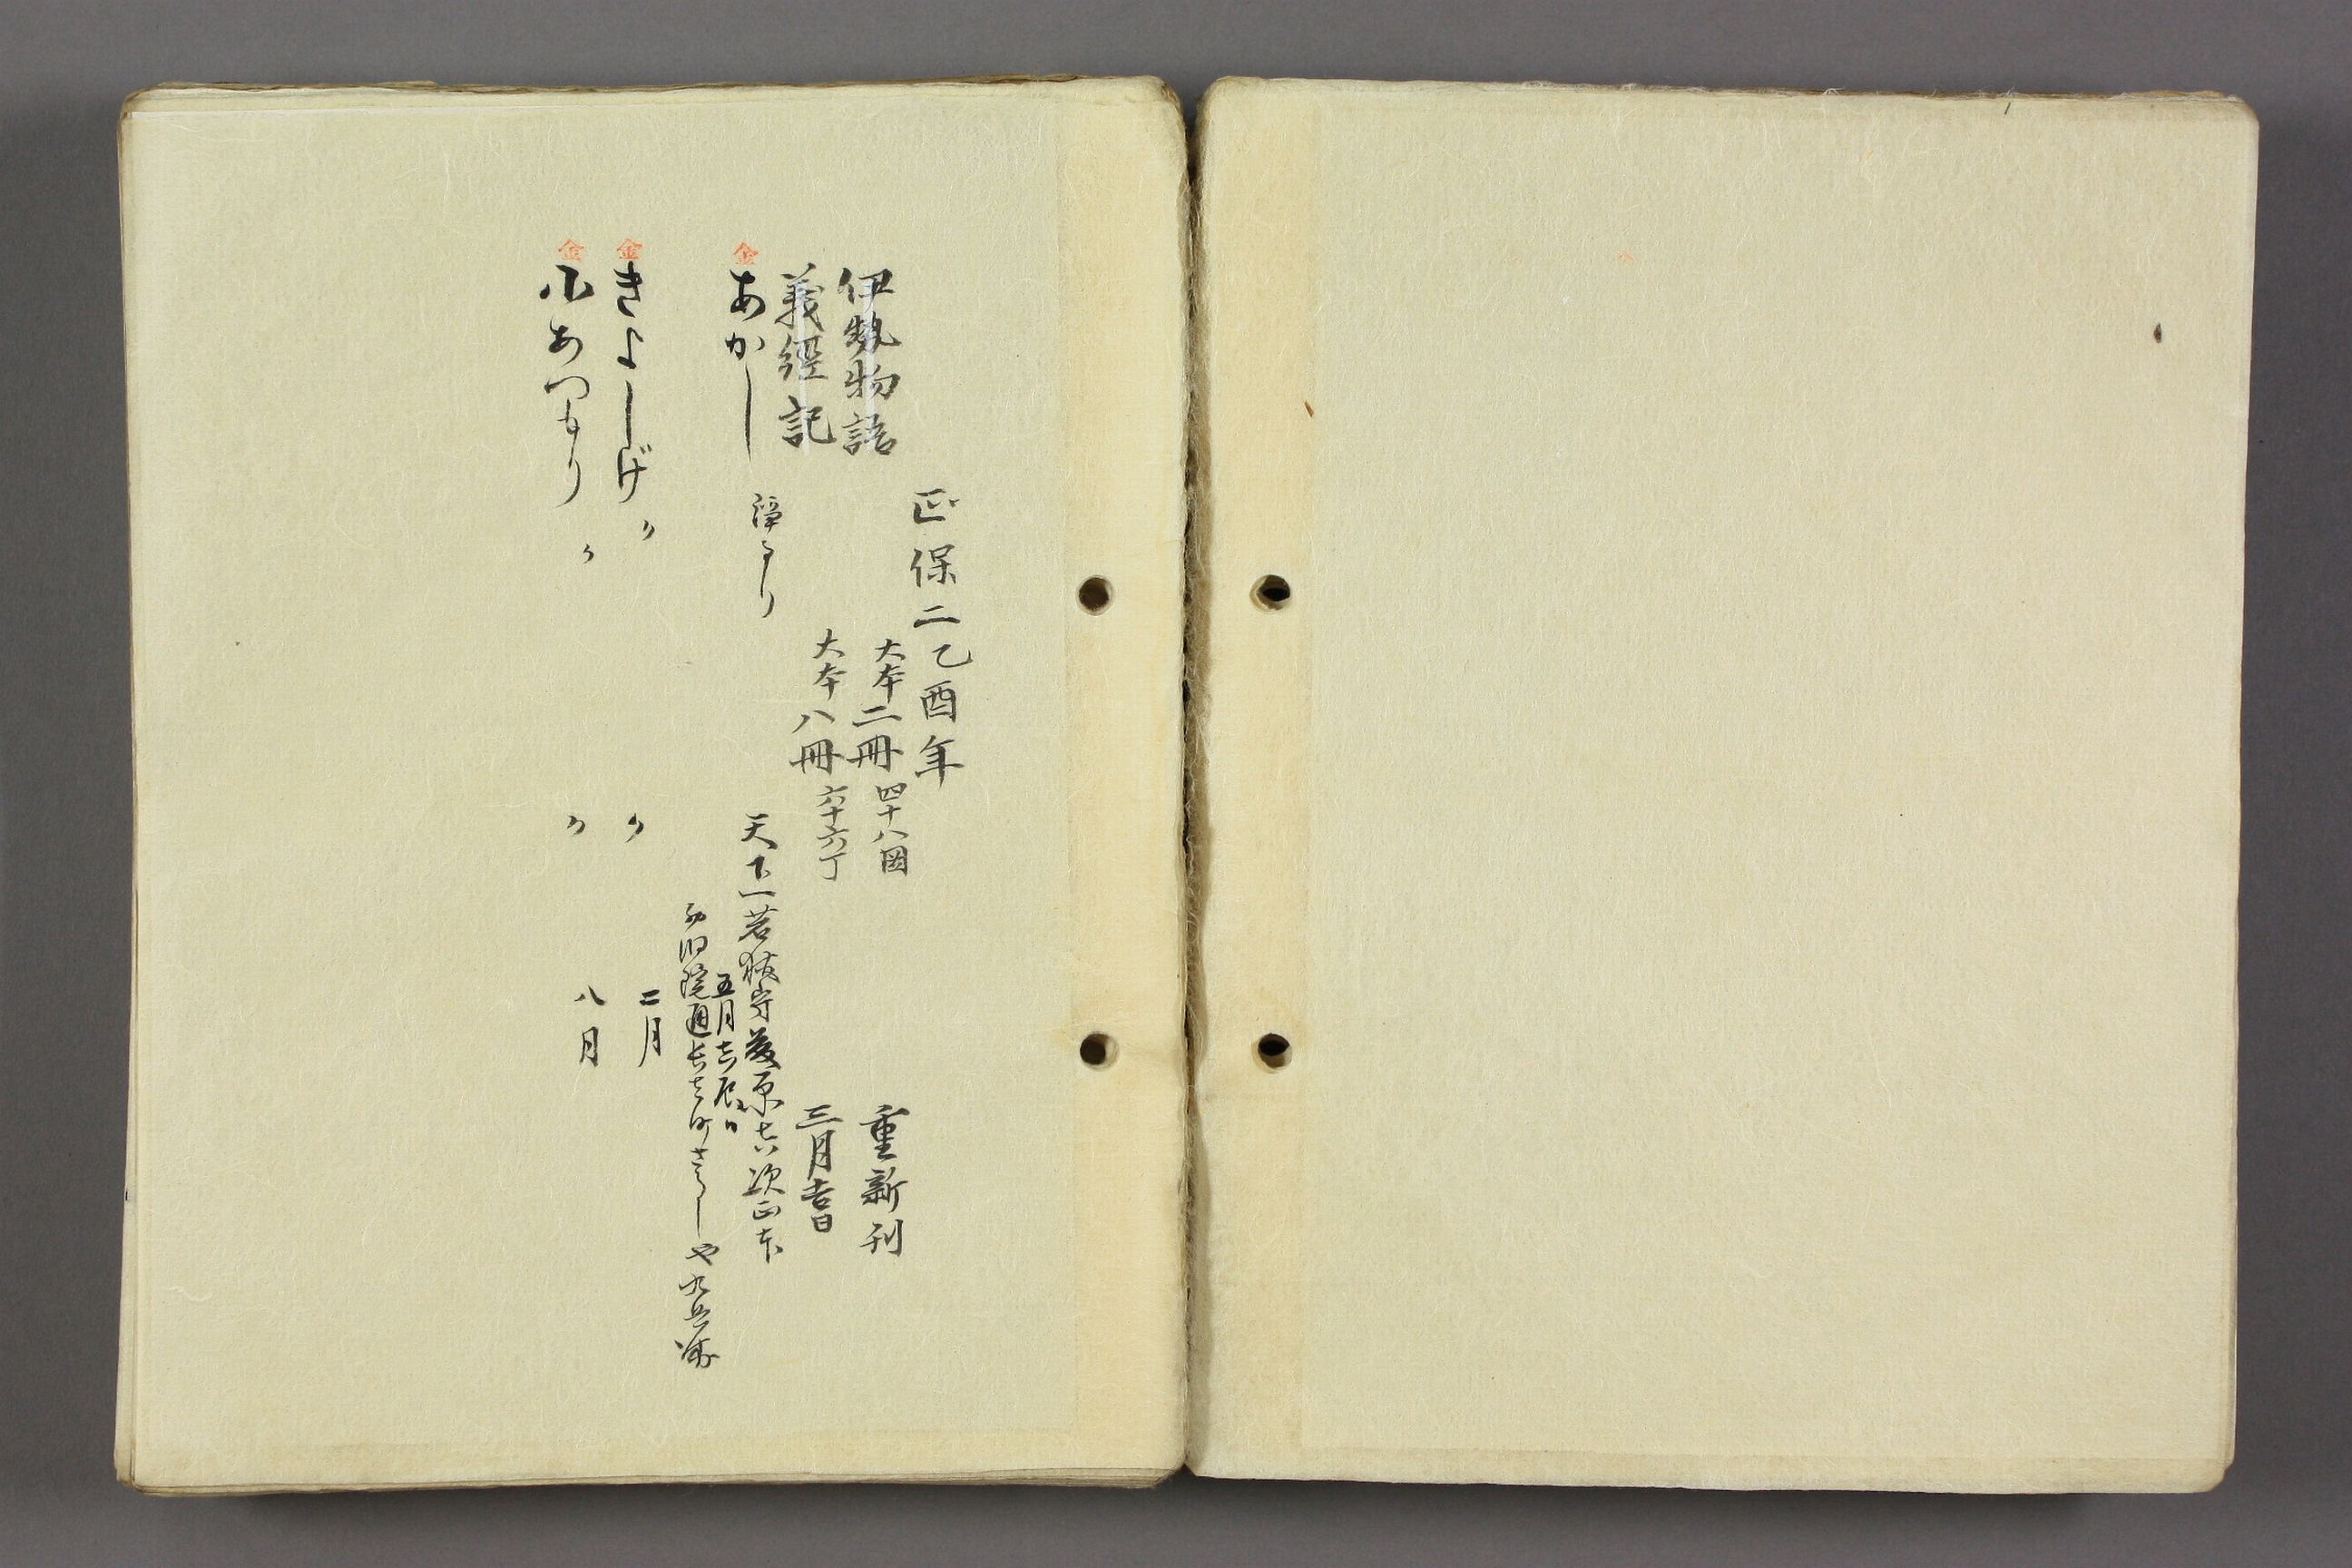 正保二乙酉年
伊勢物語 大本二冊 四十八図 重新刊
義經記 大本八冊 六十六丁 三月吉日
金 あかし 浄るり 天下一若狭守藤原吉次正本
五月吉辰日
西洞院通長者町さうしや九兵衛
金 きよしげ 〃 〃 二月
金 小あつもり 〃 〃 八月